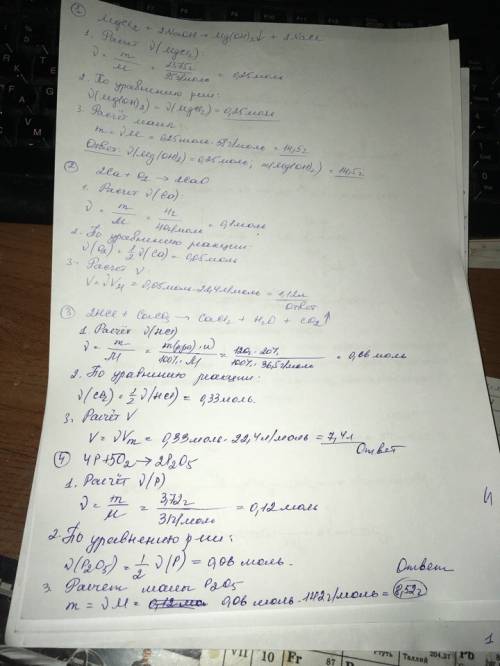 ① MgCl₂ + 2NaOH → Mg(OH)₂↓ + 2NaCl
1. Расчёт ν(MgCl₂):
ν = m/M = 23,75г/95г/моль = 0,25моль
2. По уравнению р-ии:
ν(Mg(OH)₂) = ν(MgCl₂) = 0,25моль
3. Расчёт массы:
m = νM = 0,25моль · 58г/моль = 14,5г
Ответ: ν(Mg(OH)₂) = 0,25моль; m(Mg(OH)₂) = 14,5г
② 2Ca + O₂ → 2CaO
1. Расчёт ν(Ca):
ν = m/M = 4г/40г/моль = 0,1моль
2. По уравнению реакции:
ν(O₂) = 1/2 ν(Ca) = 0,05моль
3. Расчёт V:
V = νVм = 0,05моль · 22,4л/моль = 1,12л
Ответ
③ 2HCl + CaCO₃ → CaCl₂ + H₂O + CO₂↑
1. Расчёт ν(HCl)
ν = m/M = m(р-ра)·ω/100%·M = 120г·20%/100%·36,5г/моль = 0,66 моль
2. По уравнению реакции:
ν(CO₂) = 1/2 ν(HCl) = 0,33моль.
3. Расчёт V
V = νVm = 0,33моль · 22,4л/моль = 7,4л
Ответ
④ 4P + 5O₂ → 2P₂O₅
1. Расчёт ν(P)
ν = m/M = 3,72г/31г/моль = 0,12 моль
2. По уравнению р-ии:
ν(P₂O₅) = 1/2 ν(P) = 0,06 моль.
3. Расчёт массы P₂O₅
Ответ
m = νM = 0,06 моль · 142г/моль = 8,52г
4
1
VII 10 Fr 87 Ртуть Таллий 204,37 Pb